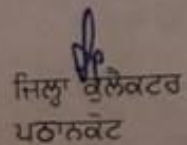 ਜਿਲ੍ਹਾ ਕੁਲੈਕਟਰ
ਪਠਾਨਕੋਟ